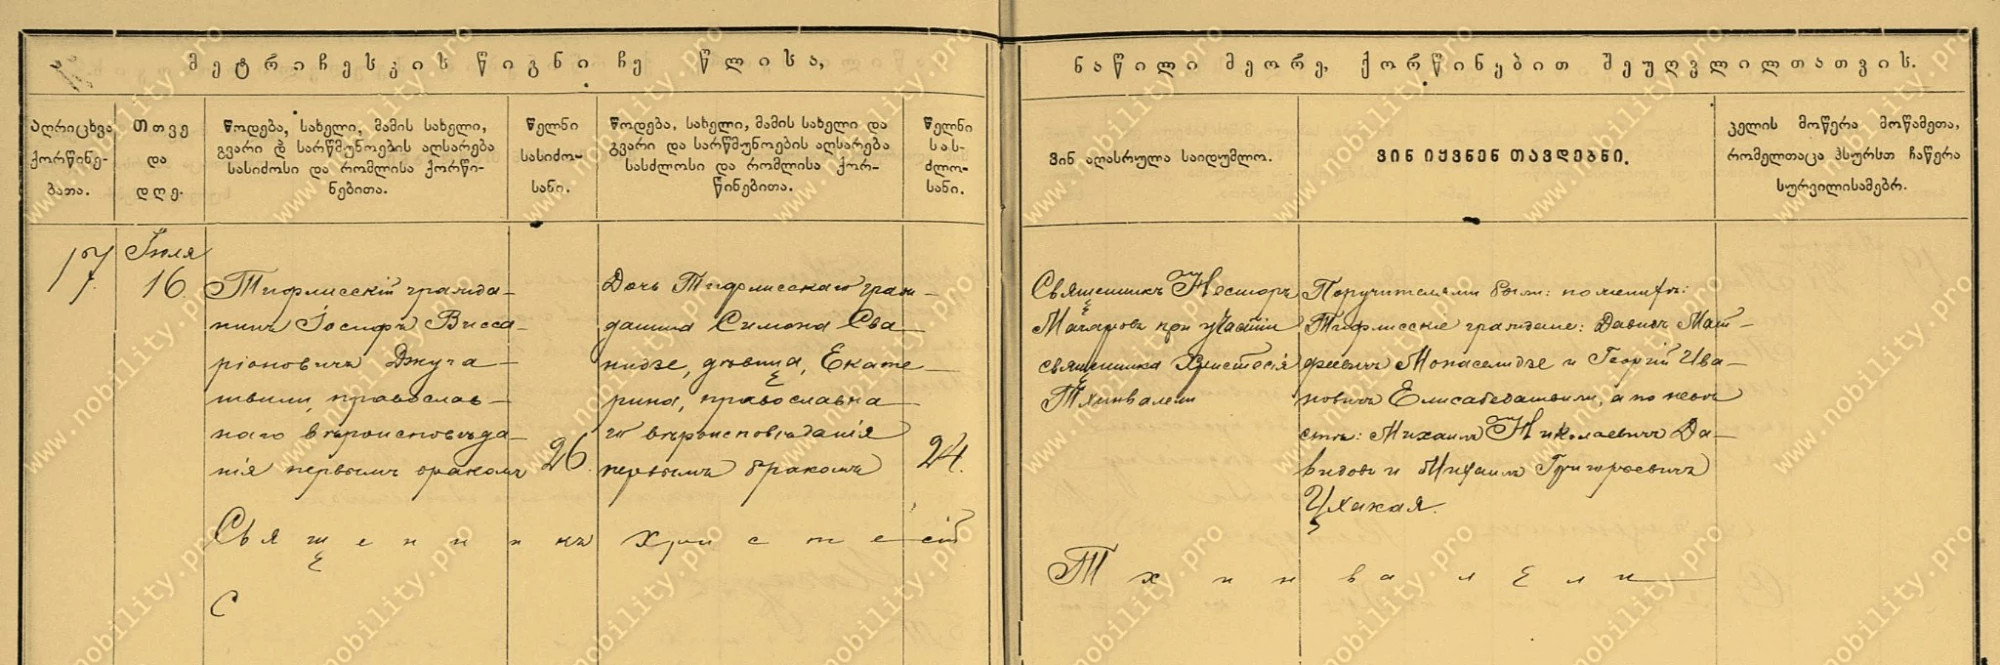 მეტრიჩესკის წიგნი ჩე წლისა,
ნაწილი მეორე, ქორწინებით შეუღვლილთათვის.
აღრიცხვა
ქორწინე-
ბათა.
თთვე
და
დღე.
წოდება, სახელი, მამის სახელი,
გვარი და სარწმუნოების აღსარება
სასიძოსი და რომლისა ქორწი-
ნებითა.
წელნი
სასიძო-
სანი.
წოდება, სახელი, მამის სახელი და
გვარი და სარწმუნოების აღსარება
სასძლოსი და რომლისა ქორ-
წინებითა.
წელნი
სას-
ძლო-
სანი.
ვინ აღასრულა საიდუმლო.
ვინ იყვნენ თავდებნი.
ჴელის მოწერა მოწამეთა,
რომელთაცა ჰსურსთ ჩაწერა
სურვილისამებრ.
17
Іюля
16
Тифлисскій гражда-
нинъ Іосифъ Висса-
ріоновичъ Джуга-
швили, православ-
наго вѣроисповѣда-
нія первымъ бракомъ
26.
Дочь Тифлисскаго граж-
данина Симона Сва-
нидзе, дѣвица, Екате-
рина, православна-
го вѣроисповѣданія
первымъ бракомъ
24.
Священникъ Несторъ
Мачаровъ при участіи
священника Христесія
Тхинвалели
Поручителями были: по жениху:
Тифлисскіе граждане: Давидъ Мат-
фѣевичъ Монаселидзе и Георгій Ива-
новичъ Елисабедашвили, а по невѣ-
стѣ: Михаилъ Николаевичъ Да-
видовъ и Михаилъ Григорьевичъ
Цхакая.
Священникъ Христесій
Тхинвалели
С
www.nobility.pro